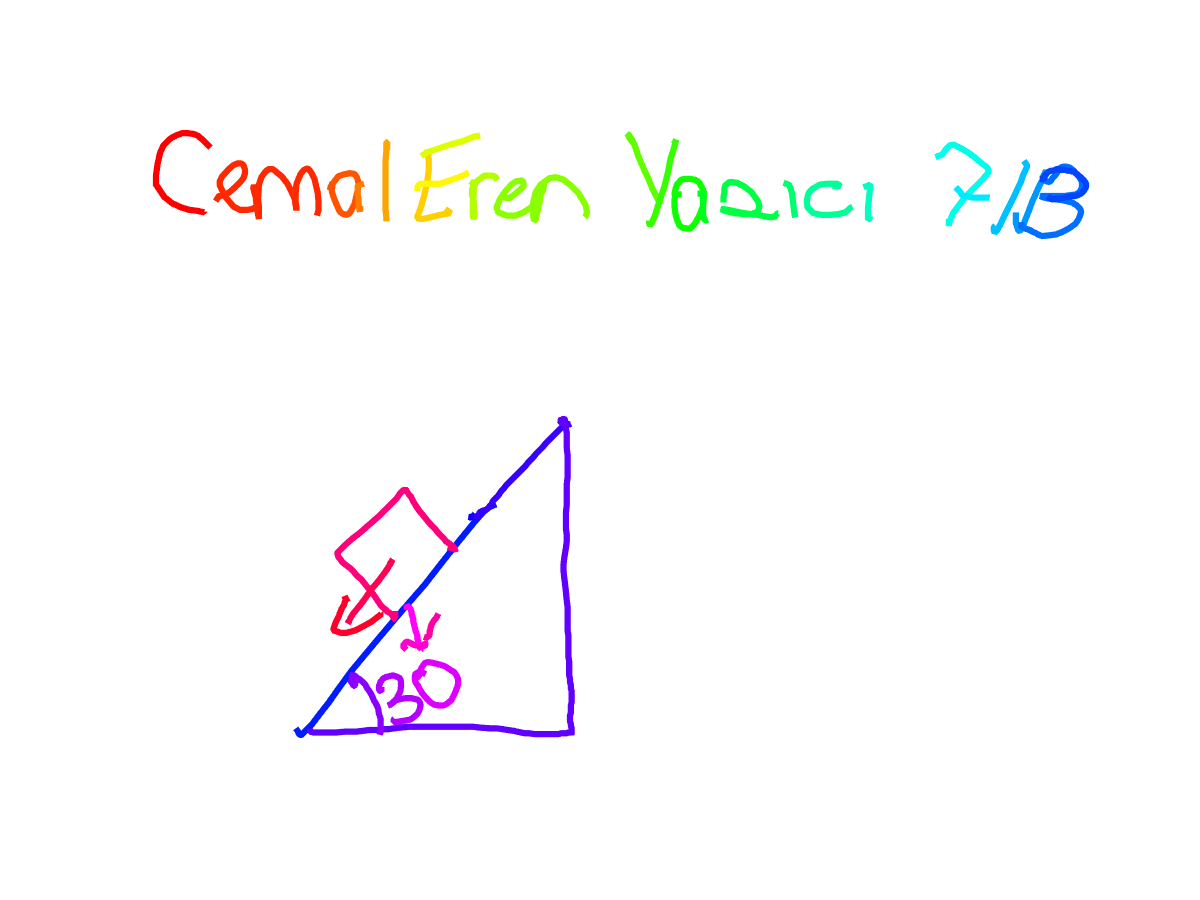 Cemal Eren Yazıcı 7/B
30